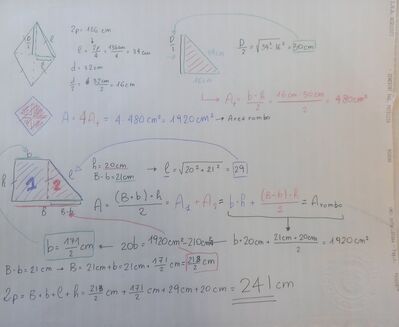 2p = 136 cm
l = 2p/4 = 136cm/4 = 34cm
d = 32cm
d/2 = 32cm/2 = 16cm
D/2
l
D/2
34cm
16cm
D/2 = √34²-16² = 30cm
→ A₁ = b·h/2 = 16cm·30cm/2 = 240cm²
A = 4A₁ = 4·480cm² = 1920cm² → Area rombo
b
h
1
2
l
B
B-b
h = 20cm
B-b = 21cm
→ l = √20²+21² = 29
A = (B+b)·h/2 = A₁ + A₂ = b·h + (B-b)·h/2 = A rombo
b = 171/2 cm ← 20b = 1920cm²-210cm² ← b·20cm + 21cm·20cm/2 = 1920cm²
B-b = 21cm → B = 21cm+b = 21cm + 171/2 cm = 213/2 cm
2p = B+b+l+h = 213/2 cm + 171/2 cm + 29cm + 20cm = 241cm